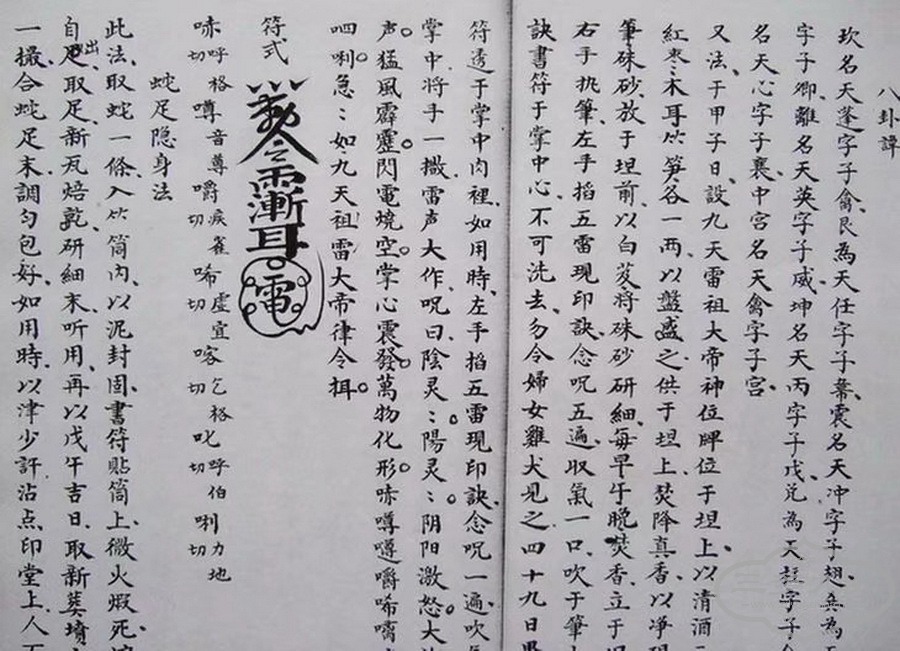 八卦諱
坎名天蓬字子禽艮為天任字子蓽震名天冲字子翹巽為
字子卿離名天英字子威坤名天丙字子戊兌為天柱字子
名天心字子襄中宮名天禽字子宮
又法于甲子日設九天雷祖大帝神位牌位于坦上以清酒
紅枣木耳竹笋各一两以盤盛之供于坦上焚降真香以净
筆硃砂放于坦前以白芨将硃砂研細每早午晚焚香立于
右手执筆左手搯五雷現印訣念呪五遍取氣一口吹于筆
訣書符于掌中心不可洗去勿令婦女雞犬見之四十九日
符透于掌中肉裡如用時左手搯五雷現印訣念呪一遍吹
掌中将手一撒雷声大作呪曰陰灵：陽灵：阴阳激怒大
声猛風霹靂閃電燒空掌心震發萬物化形㖒噂噂嚼唏
呬唎急：如九天祖雷大帝律令揖
符式
㖒呼格切噂音尊嚼疾雀切唏虚宜切喀乞格切叱呼伯切唎力地切
蛇足隐身法
此法取蛇一條入竹筒内以泥封固書符贴筒上微火煅死
自出足取足新瓦焙乾研細末听用再以戊午吉日取新葬墳
一撮合蛇足末調匀包好如用時以津少許沾点印堂上人